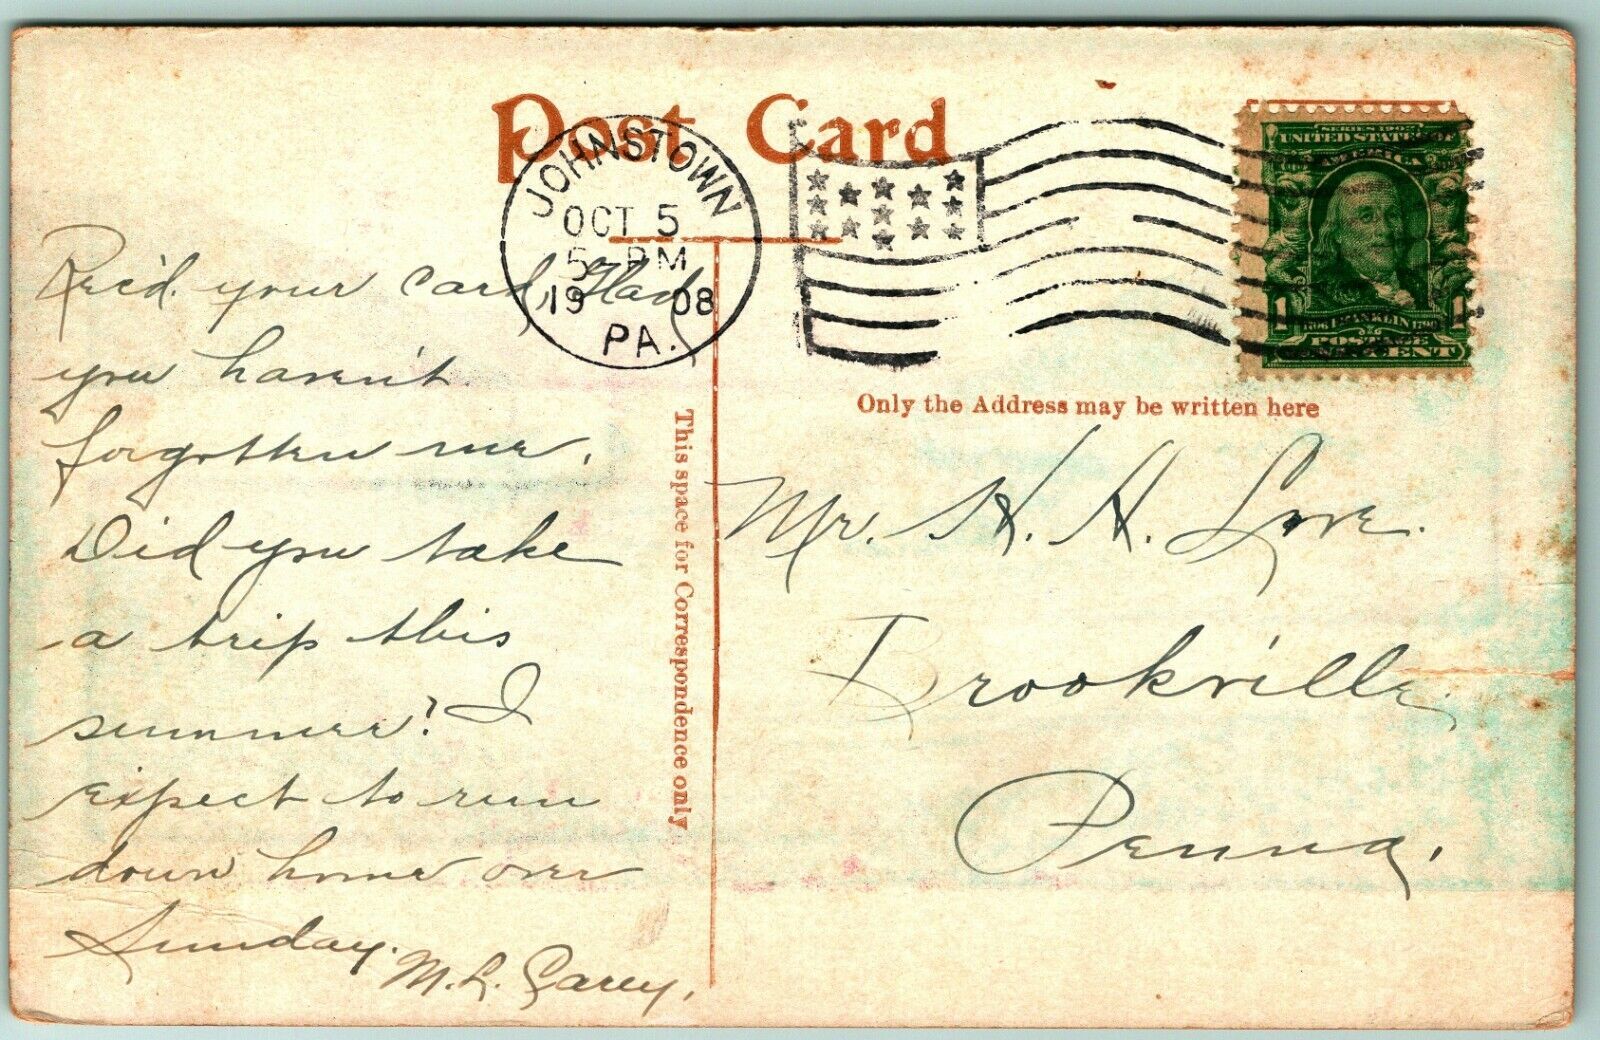 Post Card
JOHNSTOWN
OCT 5
5 - PM
19 08
PA.
SERIES 1902
UNITED STATES OF
AMERICA
1 FRANKLIN 1
POSTAGE
ONE CENT
Rec'd. your card, Glad
you haven't
forgotten me.
Did you take
a trip this
summer? I
expect to run
down home over
Sunday.
M. L. Carey,
This space for Correspondence only
Only the Address may be written here
Mr. H. H. Love.
Brookville
Penna.